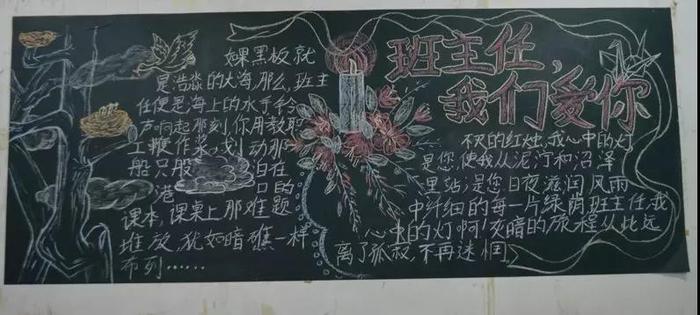 班主任,
我们爱你
如果黑板就
是浩淼的大海,那么,班主
任便是海上的水手铃
声响起那刻,你用教职
工鞭作桨,划动那
船只般 泊在
港 口的
课本,课桌上那难题
堆放,犹如暗礁一样
布列……
不尺的红烛,我心中的灯
是您,使我从泥泞和沼泽
里站;是您日夜滋润风雨
中纤细的每一片绿荫班主任,我
心中的灯啊!灰暗的旅程从此远
离了孤寂,不再迷惘。